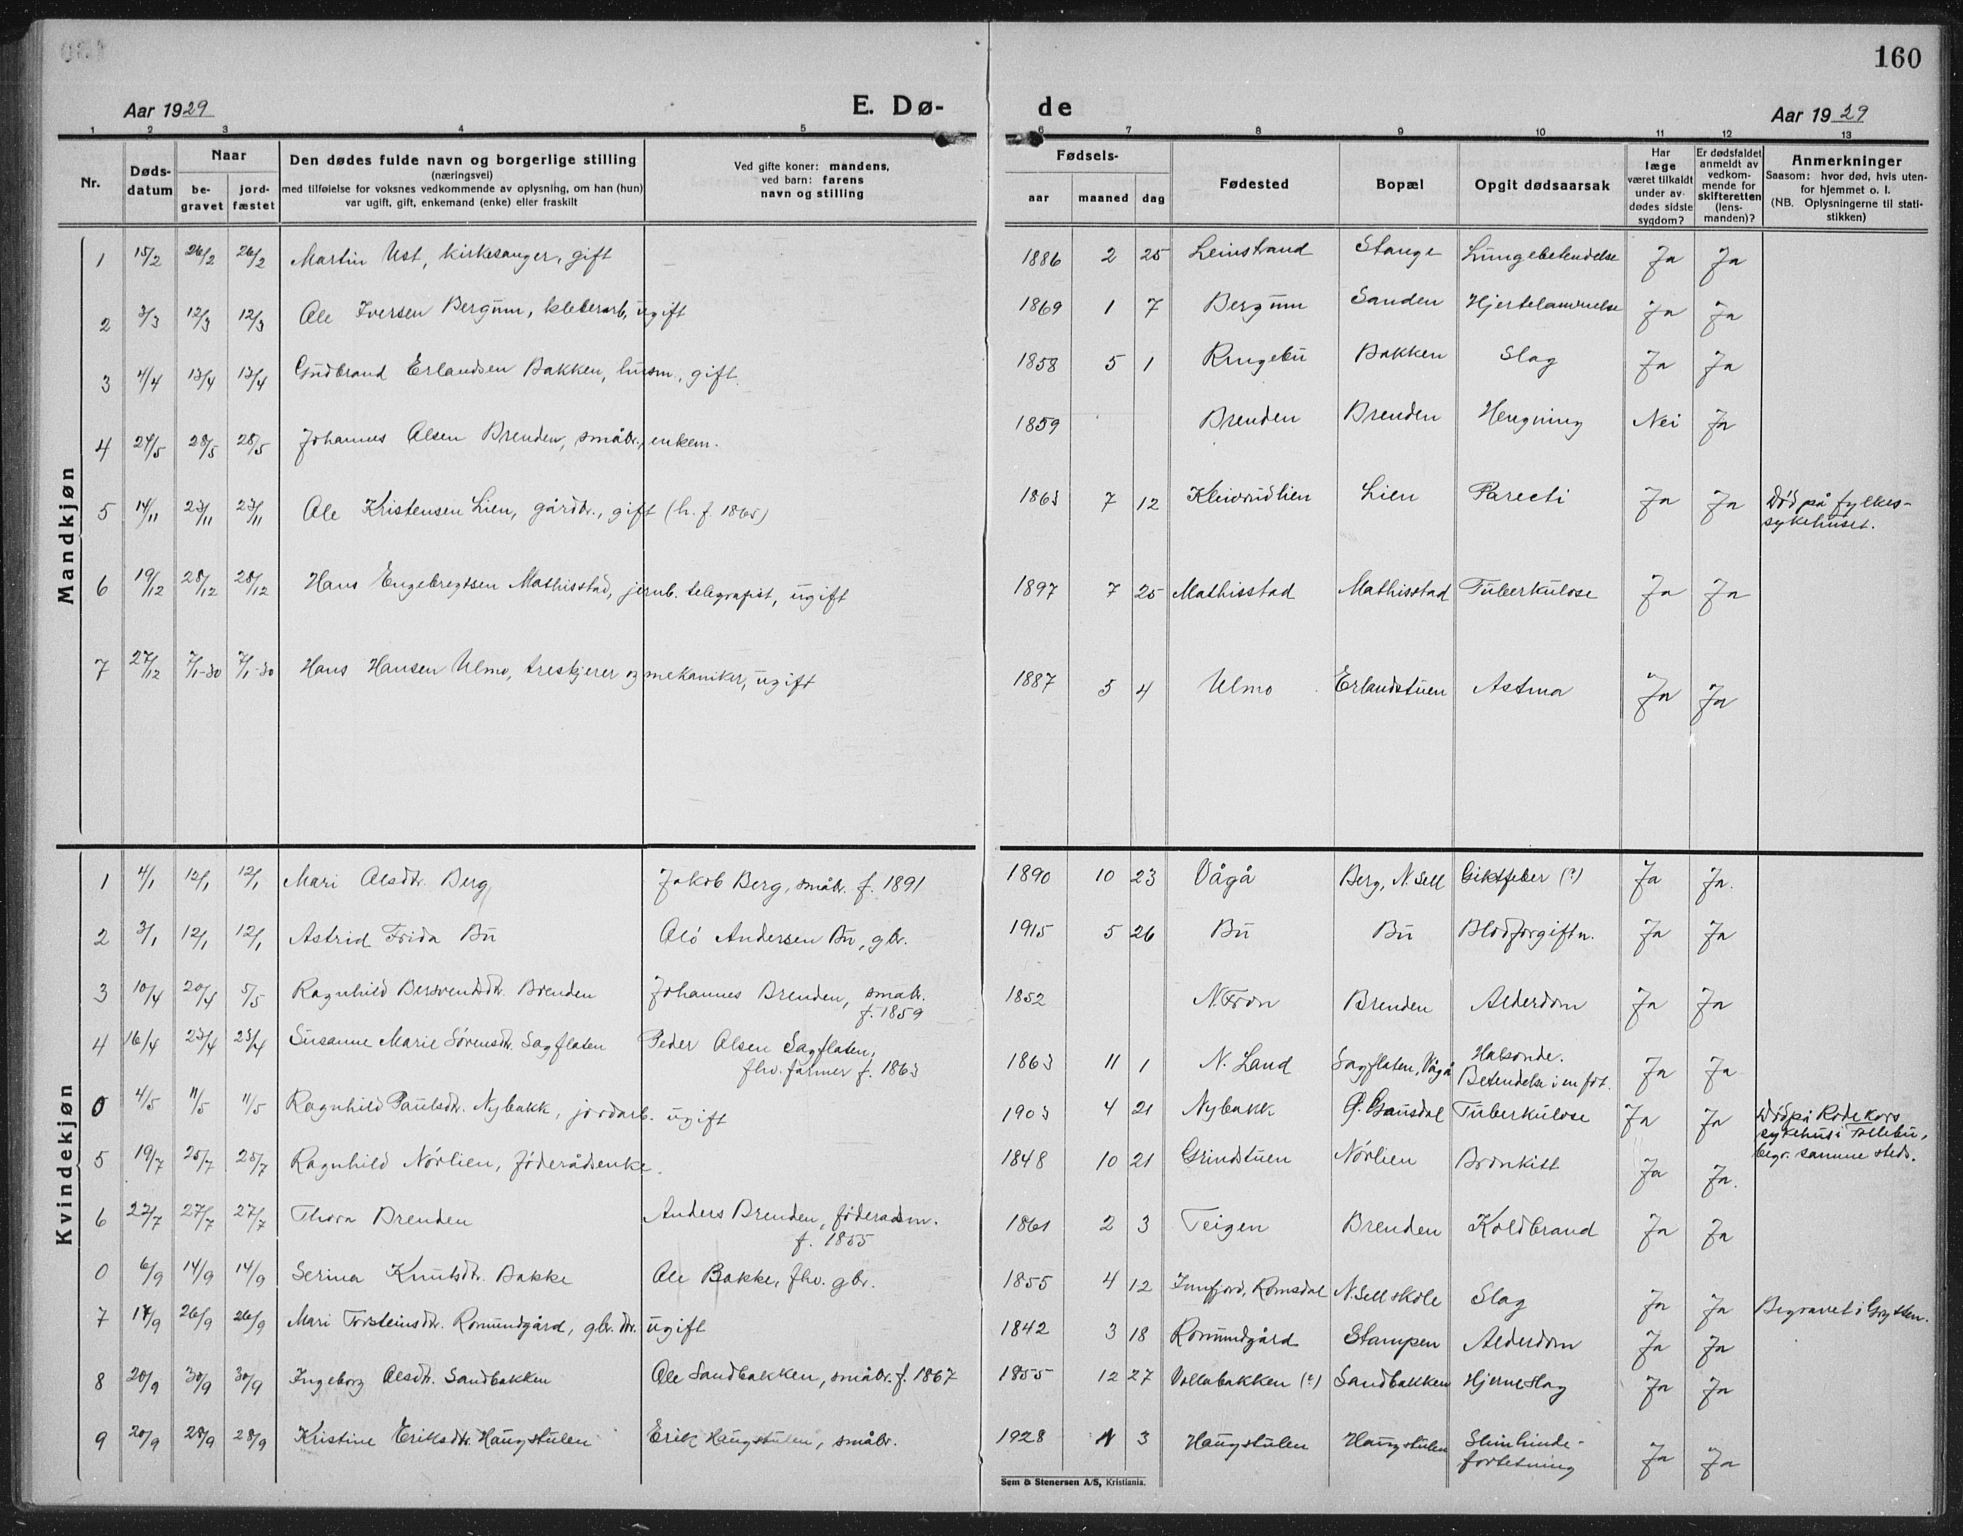 160
Aar 1929 E. Dø- de Aar 1929
1 2 3 4 5 6 7 8 9 10 11 12 13
Nr. Døds-datum Naar be-gravet jord-fæstet Den dødes fulde navn og borgerlige stilling (næringsvei) med tilføielse for voksnes vedkommende av oplysning, om han (hun) var ugift, gift, enkemand (enke) eller fraskilt Ved gifte koner: mandens, ved barn: farens navn og stilling Fødsels- aar maaned dag Fødested Bopæl Opgit dødsaarsak Har læge været tilkaldt under av-dødes sidste sygdom? Er dødsfaldet anmeldt av vedkom-mende for skifteretten (lens-manden)? Anmerkninger Saasom: hvor død, hvis uten-for hjemmet o. l. (NB. Oplysningerne til stati-stikken)
Mandkjøn
1 15/2 26/2 26/2 Martin Ust, kirkesanger, gift 1886 2 25 Leinstrand Stange Lungebetendelse Ja Ja
2 3/3 12/3 12/3 Ole Iversen Bergum, kleberarb, ugift 1869 1 7 Bergum Sanden Hjertelammelse Ja Ja
3 4/4 13/4 13/4 Gudbrand Erlandsen Bakken, husm, gift. 1858 5 1 Ringebu Bakken Slag Ja Ja
4 24/5 28/5 28/5 Johannes Olsen Brenden, småbr., enkem. 1859 Brenden Brenden Hengning Nei Ja
5 14/11 23/11 23/11 Ole Kristensen Lien, gårdbr., gift (h. f. 1865) 1863 7 12 Kleivrudlien Lien Parecti Ja Ja Død på fylkes-
sykehuset.
6 19/12 28/12 28/12 Hans Engebregtsen Mathisstad, jernb. telegrafist, ugift 1897 7 25 Mathisstad Mathisstad Tuberkulose Ja Ja
7 27/12 7/1-30 7/1-30 Hans Hansen Ulmo, treskjerer og mekaniker, ugift 1887 5 4 Ulmo Erlandstuen Astma Ja Ja
Kvindekjøn
1 4/1 12/1 12/1 Mari Olsdtr. Berg Jakob Berg, småbr. f. 1891 1890 10 23 Vågå Berg, N. Sell Giktfeber (?) Ja Ja.
2 3/1 12/1 12/1 Astrid Frida Bu Olö Andersen Bu, gbr. 1915 5 26 Bu Bu Blodforgiftn. Ja Ja
3 10/4 20/4 5/5 Ragnhild Bersvendsdtr. Brenden Johannes Brenden, småbr. 1852 N. Fron Brenden Alderdom Ja Ja
f. 1859
4 16/4 23/4 23/4 Susanne Marie Sørensdtr. Sagflaten Peder Olsen Sagflaten, 1863 11 1 N. Land Sagflaten, Vågå Halsonde. Ja Ja
fhv. farmer f. 1863 Betendelse i en fot.
0 4/5 11/5 11/5 Ragnhild Paulsdtr. Nybakk, jordarb. ugift 1903 4 21 Nybakk Ø. Gausdal Tuberkulose Ja Ja Død på Røde kors
sykehus i Follebu,
begr. samme steds.
5 19/7 25/7 25/7 Ragnhild Nørlien, føderådsenke. 1848 10 21 Grindstuen Nørlien Bronkitt Ja Ja.
6 22/7 27/7 27/7 Thora Brenden Anders Brenden, føderadsm. 1861 2 3 Teigen Brenden Koldbrand Ja Ja
f. 1855
0 6/9 14/9 14/9 Serina Knutsdtr. Bakke Ole Bakke, fhv. gbr. 1855 4 12 Innfjord, Romsdal N. Sell skole Slag Ja Ja Begravet i Grytten.
7 17/9 26/9 26/9 Mari Torsteinsdtr. Romundgård, gbr. dtr. ugift 1842 3 18 Romundgård Stampen Alderdom Ja Ja
8 20/9 30/9 30/9 Ingeborg Olsdtr. Sandbakken Ole Sandbakken, småbr. f. 1867 1855 12 27 Vollabakken (?) Sandbakken Hjerneslag Ja Ja
9 20/9 28/9 28/9 Kristine Eriksdtr. Haugstulen Erik Haugstulen, småbr. 1928 3 Haugstulen Haugstulen Slimhinde-
fortetning Ja Ja
Sem & Stenersen A/S, Kristiania.